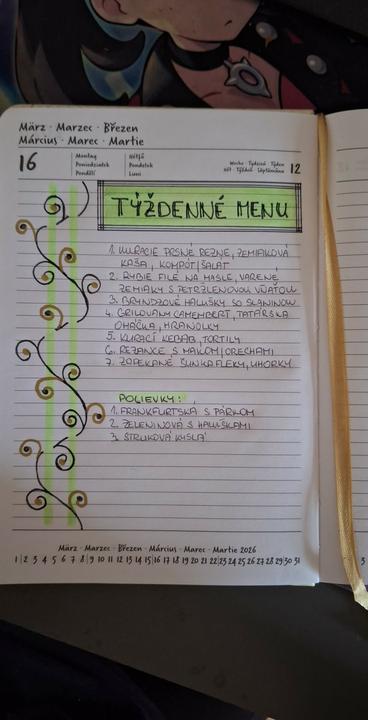 März · Marzec · Březen
Március · Marec · Martie
16
Montag
Poniedziałek
Pondělí
Hétfő
Pondelok
Luni
Woche · Tydzień · Týden
Hét · Týždeň · Săptămâna
12
TÝŽDENNÉ MENU
1. KURACIE PRSNÉ REZNE, ZEMIAKOVÁ
KAŠA, KOMPÓT/ŠALÁT
2. RYBIE FILÉ NA MASLE, VARENÉ
ZEMIAKY S PETRŽLENOVOU VŇAŤOU
3. BRYNDZOVÉ HALUŠKY SO SLANINOU
4. GRILOVANÝ CAMEMBERT, TATÁRSKA
OMÁČKA, HRANOLKY
5. KURACÍ KEBAB, TORTILY
6. REZANCE S MAKOM/ORECHAMI
7. ZAPEKANÉ ŠUNKAFLEKY, UHORKY
POLIEVKY:
1. FRANKFURTSKÁ S PÁRKOM
2. ZELENINOVÁ S HALUŠKAMI
3. STRUKOVÁ KYSLÁ
März · Marzec · Březen · Március · Marec · Martie 2026
1|2 3 4 5 6 7 8|9 10 11 12 13 14 15|16 17 18 19 20 21 22|23 24 25 26 27 28 29|30 31